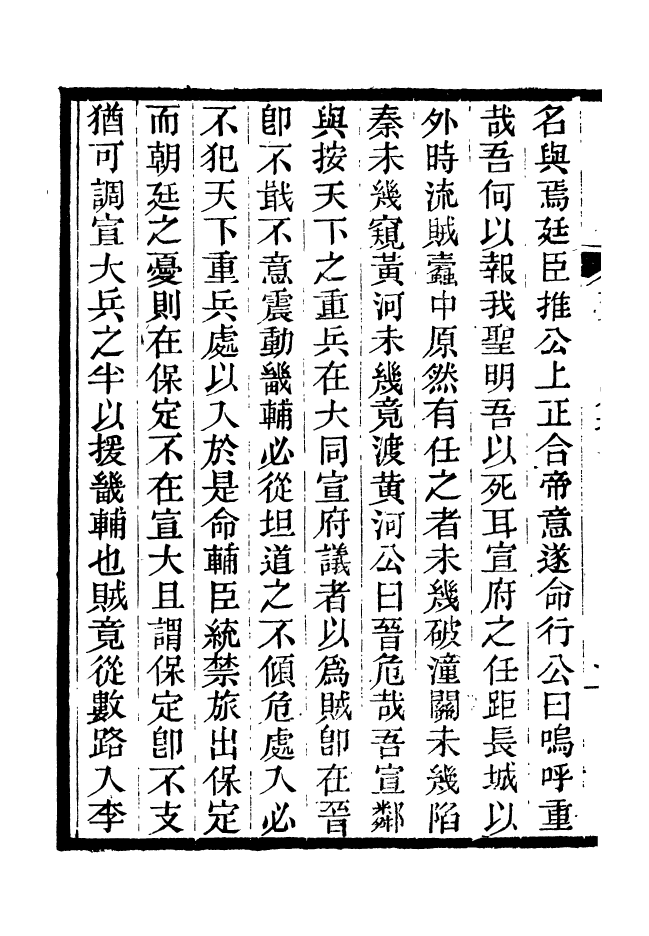 名與焉廷臣推公上正合帝意遂命行公曰嗚呼重
哉吾何以報我聖明吾以死耳宣府之任距長城以
外時流賊蠹中原然有任之者未幾破潼關未幾陷
秦未幾窺黃河未幾竟渡黃河公曰晉危哉吾宣鄰
與按天下之重兵在大同宣府議者以爲賊卽在晉
卽不戢不意震動畿輔必從坦道之不傾危處入必
不犯天下重兵處以入於是命輔臣統禁旅出保定
而朝廷之憂則在保定不在宣大且謂保定卽不支
猶可調宣大兵之半以援畿輔也賊竟從數路入李